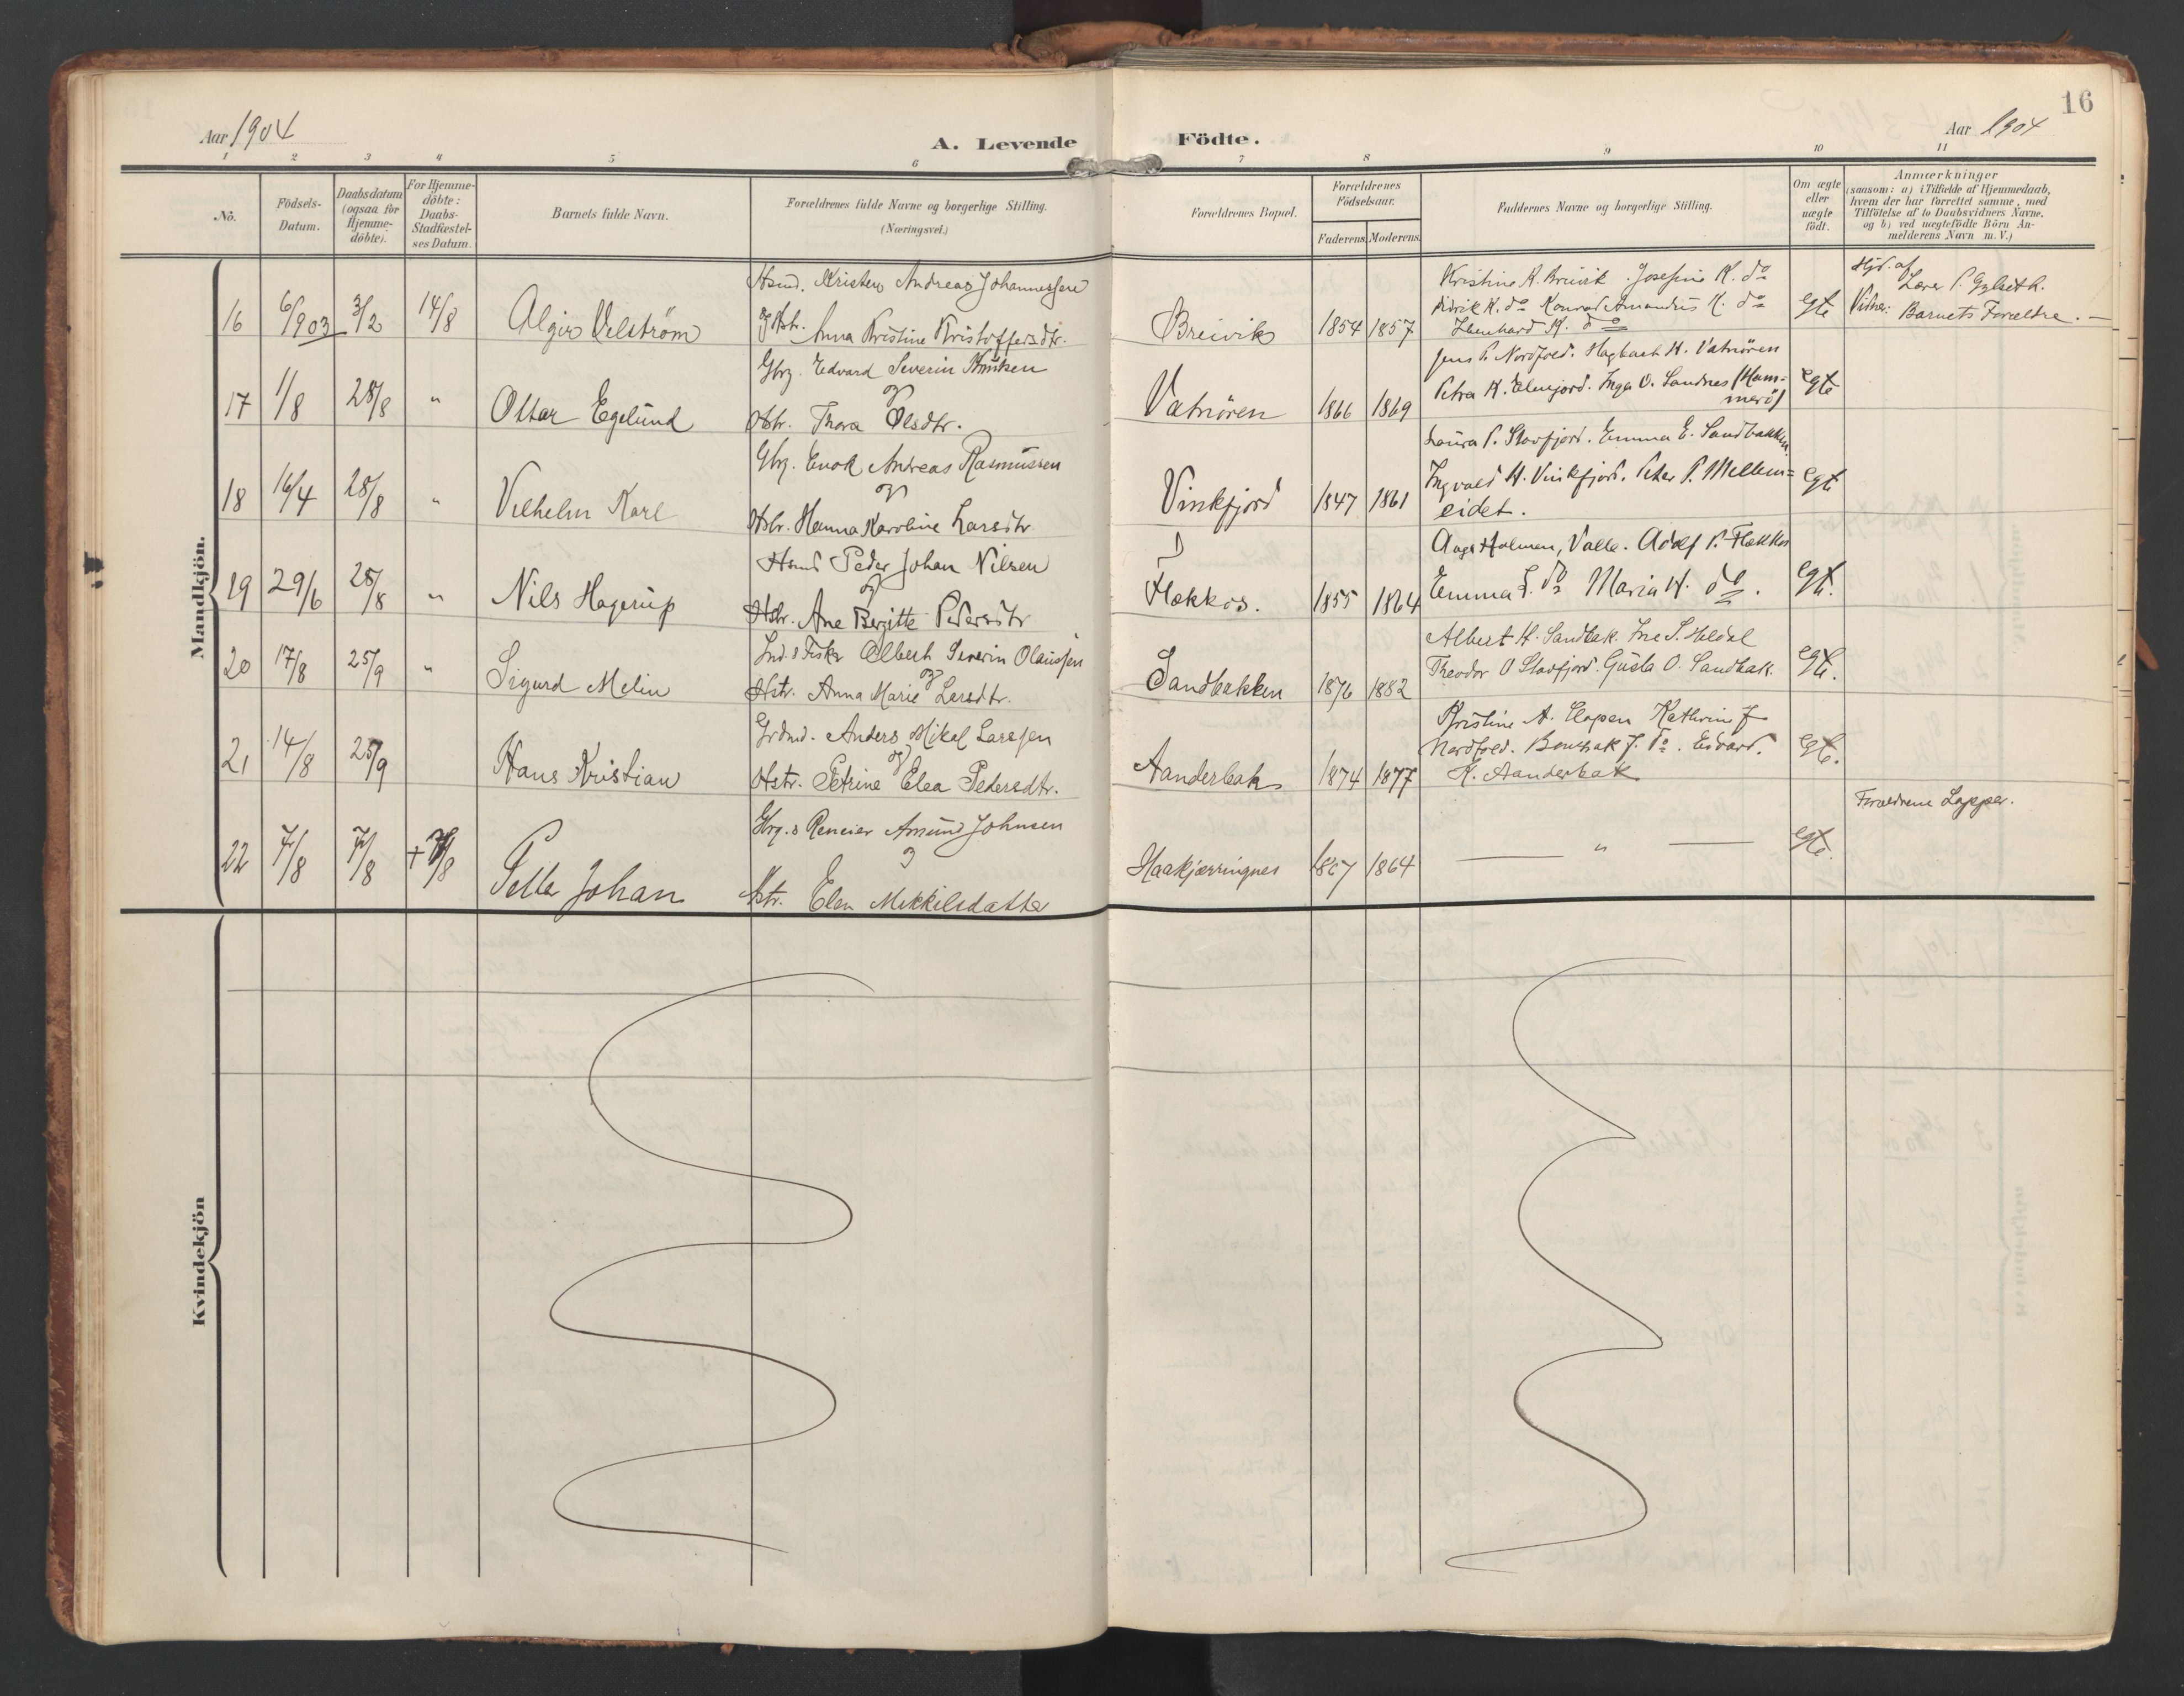 16
Aar 1904
A. Levende Födte.
Aar 1904
1 2 3 4 5 6 7 8 9 10 11
No.
Födsels-
Datum.
Daabsdatum
(ogsaa för
Hjemme-
döbte).
For Hjemme-
döbte:
Daabs-
Stadfæstel-
ses Datum.
Barnets fulde Navn.
Forældrenes fulde Navne og borgerlige Stilling.
(Næringsvei.)
Forældrenes Bopæl.
Forældrenes
Födselsaar.
Faderens. Moderens.
Faddernes Navne og borgerlige Stilling.
Om ægte
eller
uægte
födt.
Anmærkninger
(saasom: a) i Tilfælde af Hjemmedaab,
hvem der har forrettet samme, med
Tilföielse af to Daabsvidners Navne,
og b) ved uægtefödte Börn An-
melderens Navn m. V.)
Mandkjön.
16 6/9 03 3/2 14/8
Algir Velström
Hsmd. Kristen Andreas Johannessen
og Hstr. Anna Kristine Kristoffersdtr.
Breivik 1854 1857
Kristine K. Breivik. Josefine K. do
Didrik K. do Konrad Amandus K. do
K. do
egte
Hjd. af
Lærer P. Gylseth.
Vidner: Barnets Forældre. —
17 1/8 28/8 "
Ottar Egelund
Gbrg. Edvard Severin
og
Hstr. Thora Olsdtr.
Vatnören 1866 1869
Jens P. Nordfold. Hagbart H. Vatnören
Petra K. Elvejord. Inga O. Sandnes (Ham-
merö)
egte
18 16/4 28/8 "
Vilhelm Karl
Gbrg. Enok Andreas Rasmussen
og
Hstr. Hanna Karoline Larsdtr
Vinkfjord 1847 1861
Laura P. Stavfjord. Emma E. Sandbakken.
Ingvald H. Vinkfjord. Peter P. Mellem-
eidet.
egte
19 29/6 28/8 "
Nils Hagerup
Hsmd Peder Johan Nilsen
og
Hstr. Ane Bergitte Pedersdtr
Flekkos. 1855 1864
Aage Holmen, Valle. Adolf P. Flekkos
Emma L. do Maria H. do.
egt.
20 17/8 25/9 "
Sigurd Melin
Ind. & Fisker Albert Severin Olaussen
og
Hstr. Anna Marie Larsdtr.
Sandbakken 1876 1882
Albert H. Sandbak. Ine S. Heldal
Theodor O Stavfjord. Gusta O. Sandbak.
egt.
21 14/8 25/9
Hans Kristian
Grdmd. Anders Mikal Larssen
og
Hstr. Petrine Elea Pedersdtr.
Aanderbak 1874 1877
Kristine A. Elapen Kathrine J.
Nordfold. J. do. Edvard.
K. Aanderbak
egte.
22 7/8 7/8 + 7/8
Petter Johan
Gbrg. & Reneier Amund Johnsen
og
Hstr. Elen Mikkelsdatter
Haakjærringnes 1867 1864
— " —
egte.
Forældrene Lapper.
Kvindekjön